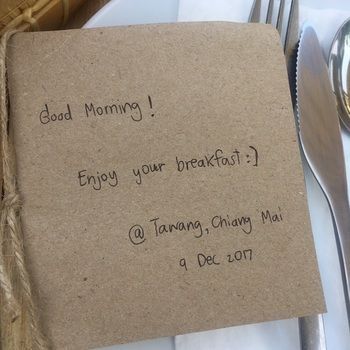 Good Morning!
Enjoy your breakfast :)
@ Tawang, Chiang Mai
9 Dec 2017